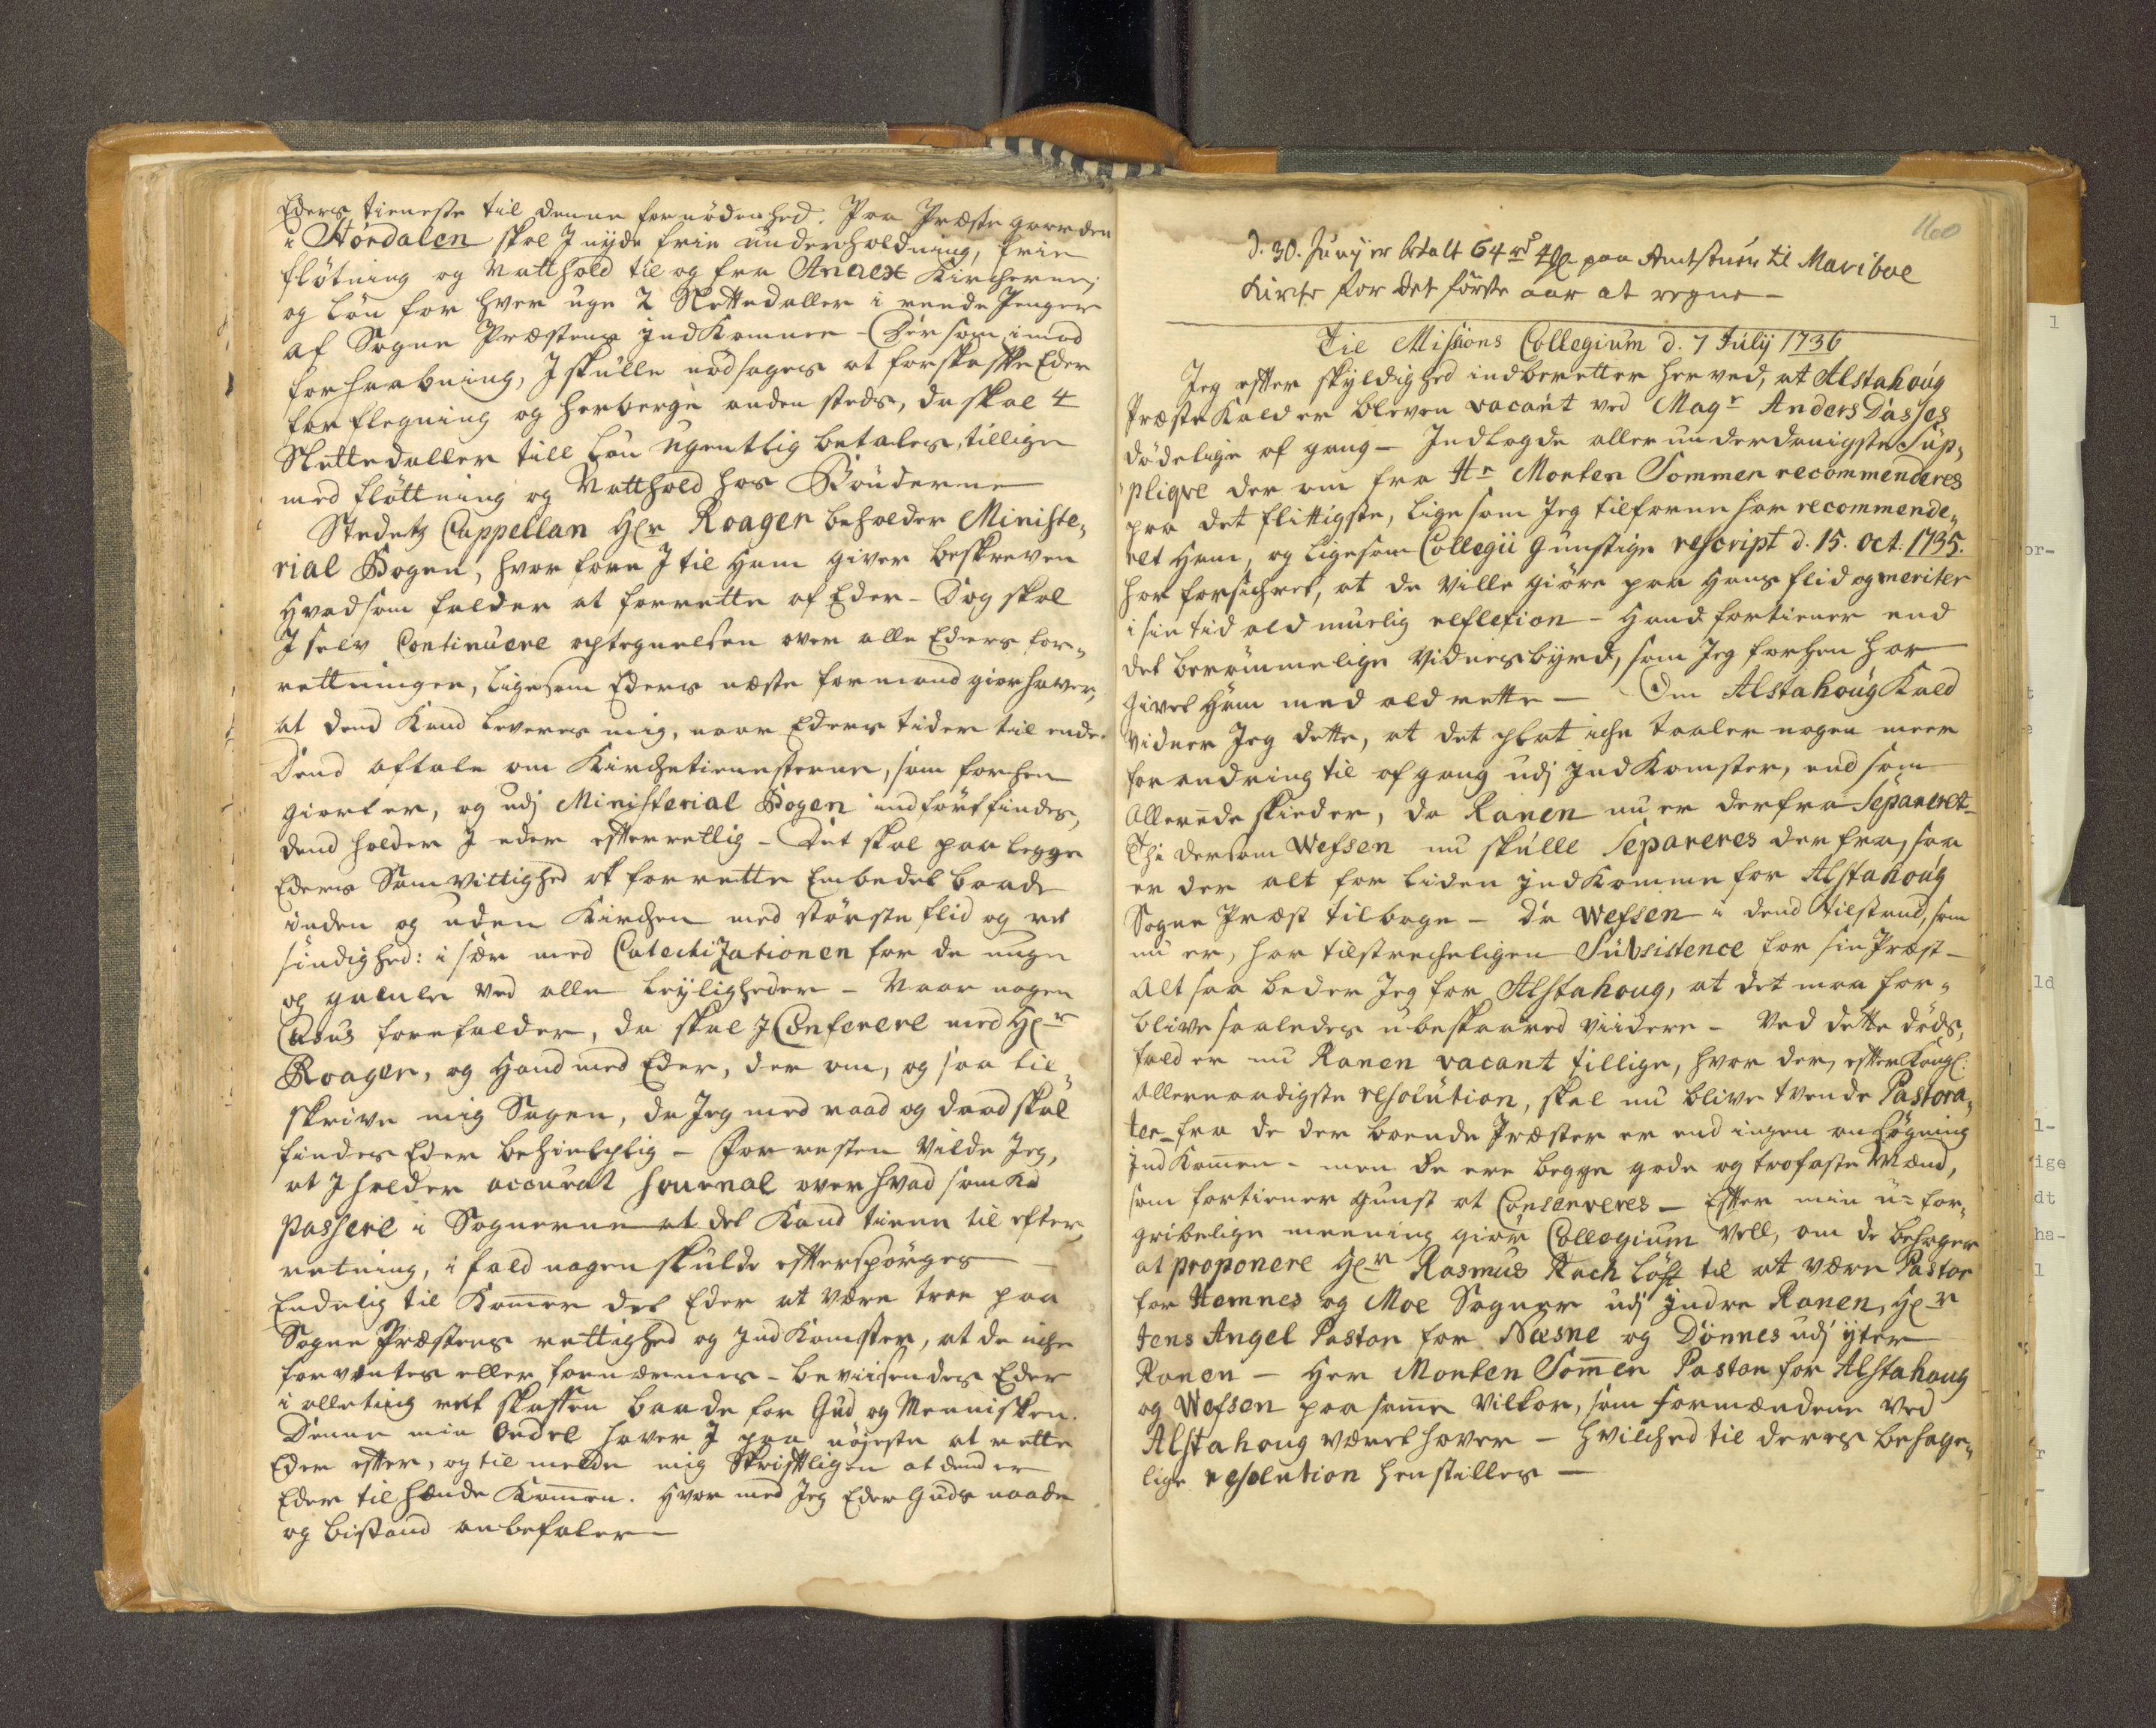 Eders tieneste til denne fornödenhed. Paa Præstegaarden
i Stördalen skal I nyde frie underholdning, frie
flötning og Natthold til og fra Annex Kircherne,
og Lön for hver uge 2 Slettedaller i rende Penger
af Sogne Præstens indKomme - Dersom imod
forhaabning, I skulle nödsages at forskaffe Eder
forflegning og herberge anden steds, da skal 4
Slettedaller till Lön ugentlig betales, tillige
med flöttning og Natthold hos Bönderne
Stedets Cappellan Hr Roager beholder Ministe„
rial Bogen, hvorfore I til Ham giver beskreven
Hvad som falder at forrette af Eder - Dog skal
I selv Continuere optegnelsen over alle Eders for„
rettninger, ligesom Eders næste formand giort haver,
at dend Kand leveres mig, naar Eders tider til ende.
Dend aftale om Kirchetienesterne, som forhen
giort er, og udj Ministerial Bogen indfört findes,
dend holder I eder efterrettlig - Det skal paaligge
Eders Samvittighed at forrette Embedet baade
inden og uden Kirchen med störste flid og ret
sindighed: i sær med Catechizationen for de unge
og gamle ved alle leyligheder - Naar nogen
Casus forefalder, da skal I Conferere med Hr
Roager, og Hand med Eder, der om, og saa til„
skrive mig Sagen, da Jeg med raad og daad skal
findes Eder behielplig - For resten vilde Jeg,
at I holder accurat Journal over hvad som
passere i Sognerne at det Kand tiene til efter„
retning, i fald nogen skulde efterspörges -
Endelig til Kommer det Eder at være troe paa
Sogne Præstens rettighed og IndKomster, at de iche
forventes eller fornærmes - beviisendes Eder
i alleting ret skaffen baade for Gud og Mennisken.
Denne min Ordre haver I paa nöjeste at rette
Eder efter, og til melde mig Skriftligen at dend er
Eder til hænde Kommen. Hvor med Jeg Eder Guds naade
og bistand anbefaler -
160
d. 30. Junij er betalt 64 rd 4 paa Amtstuen til Mariboe
Kirke for det förste aar at regne -
Til Missions Collegium d. 7 Julij 1736
Jeg efter skyldighed indberetter herved, at Alstahoug
PræsteKald er bleven vacant ved Magr Anders Dasses
dödelige afgang - Indlagde allerunderdanigste Sup„
plique der om fra Hr Morten Sommer recommenderes
paa det flittigste, lige som Jeg tilforne har recommende„
ret Ham, og ligesom Collegii Gunstige rescript d. 15. Oct. 1735.
har forsichret, at de ville giöre paa Hans flid og meriter
i sin tid ald muelig reflexion - Hand fortiener end
det berömmelige Vidnesbyrd, som Jeg forhen har
givet Ham med ald rette - Om Alstahoug Kald
vidner Jeg dette, at det plat iche taaler nogen meer
forandring til afgang udj IndKomster, end som
allerede skieder, da Ranen nu er derfra Separeret -
Thi dersom Wefsen nu skulle Separeres derfra, saa
er der alt for liden IndKomme for Alstahoug
Sogne Præst tilbage - Da Wefsen i dend tilstand, som
nu er, har tilstrecheligen Subsistence for sin Præst -
Alt saa beder Jeg for Alstahoug, at det maa for„
blive saaledes ubeskaaret viidere - Ved dette döds„
fald er nu Ranen vacant tillige, hvor der, efter Kongl:
Allernaadigste resolution, skal nu blive tvende Pastora„
ter - fra de der boende Præster er end ingen ansögning
IndKommen - men de ere begge gode og trofaste Mænd,
som fortiener Gunst at Conserveres - Efter min u=for„
gribelige meening giör Collegium vell, om de behager
at proponere Hr Rasmus Rach Löst til at være Pastor
for Hemnes og Moe Sogner udj Indre Ranen, Hr
Jens Angel Pastor for Næsne og Dönnes udj ytere
Ranen - Her Morten Sommer Pastor for Alstahoug
og Wefsen paa samme vilkor, som formændene ved
Alstahoug været haver - hvilchet til deres behage„
lige resolution henstilles -